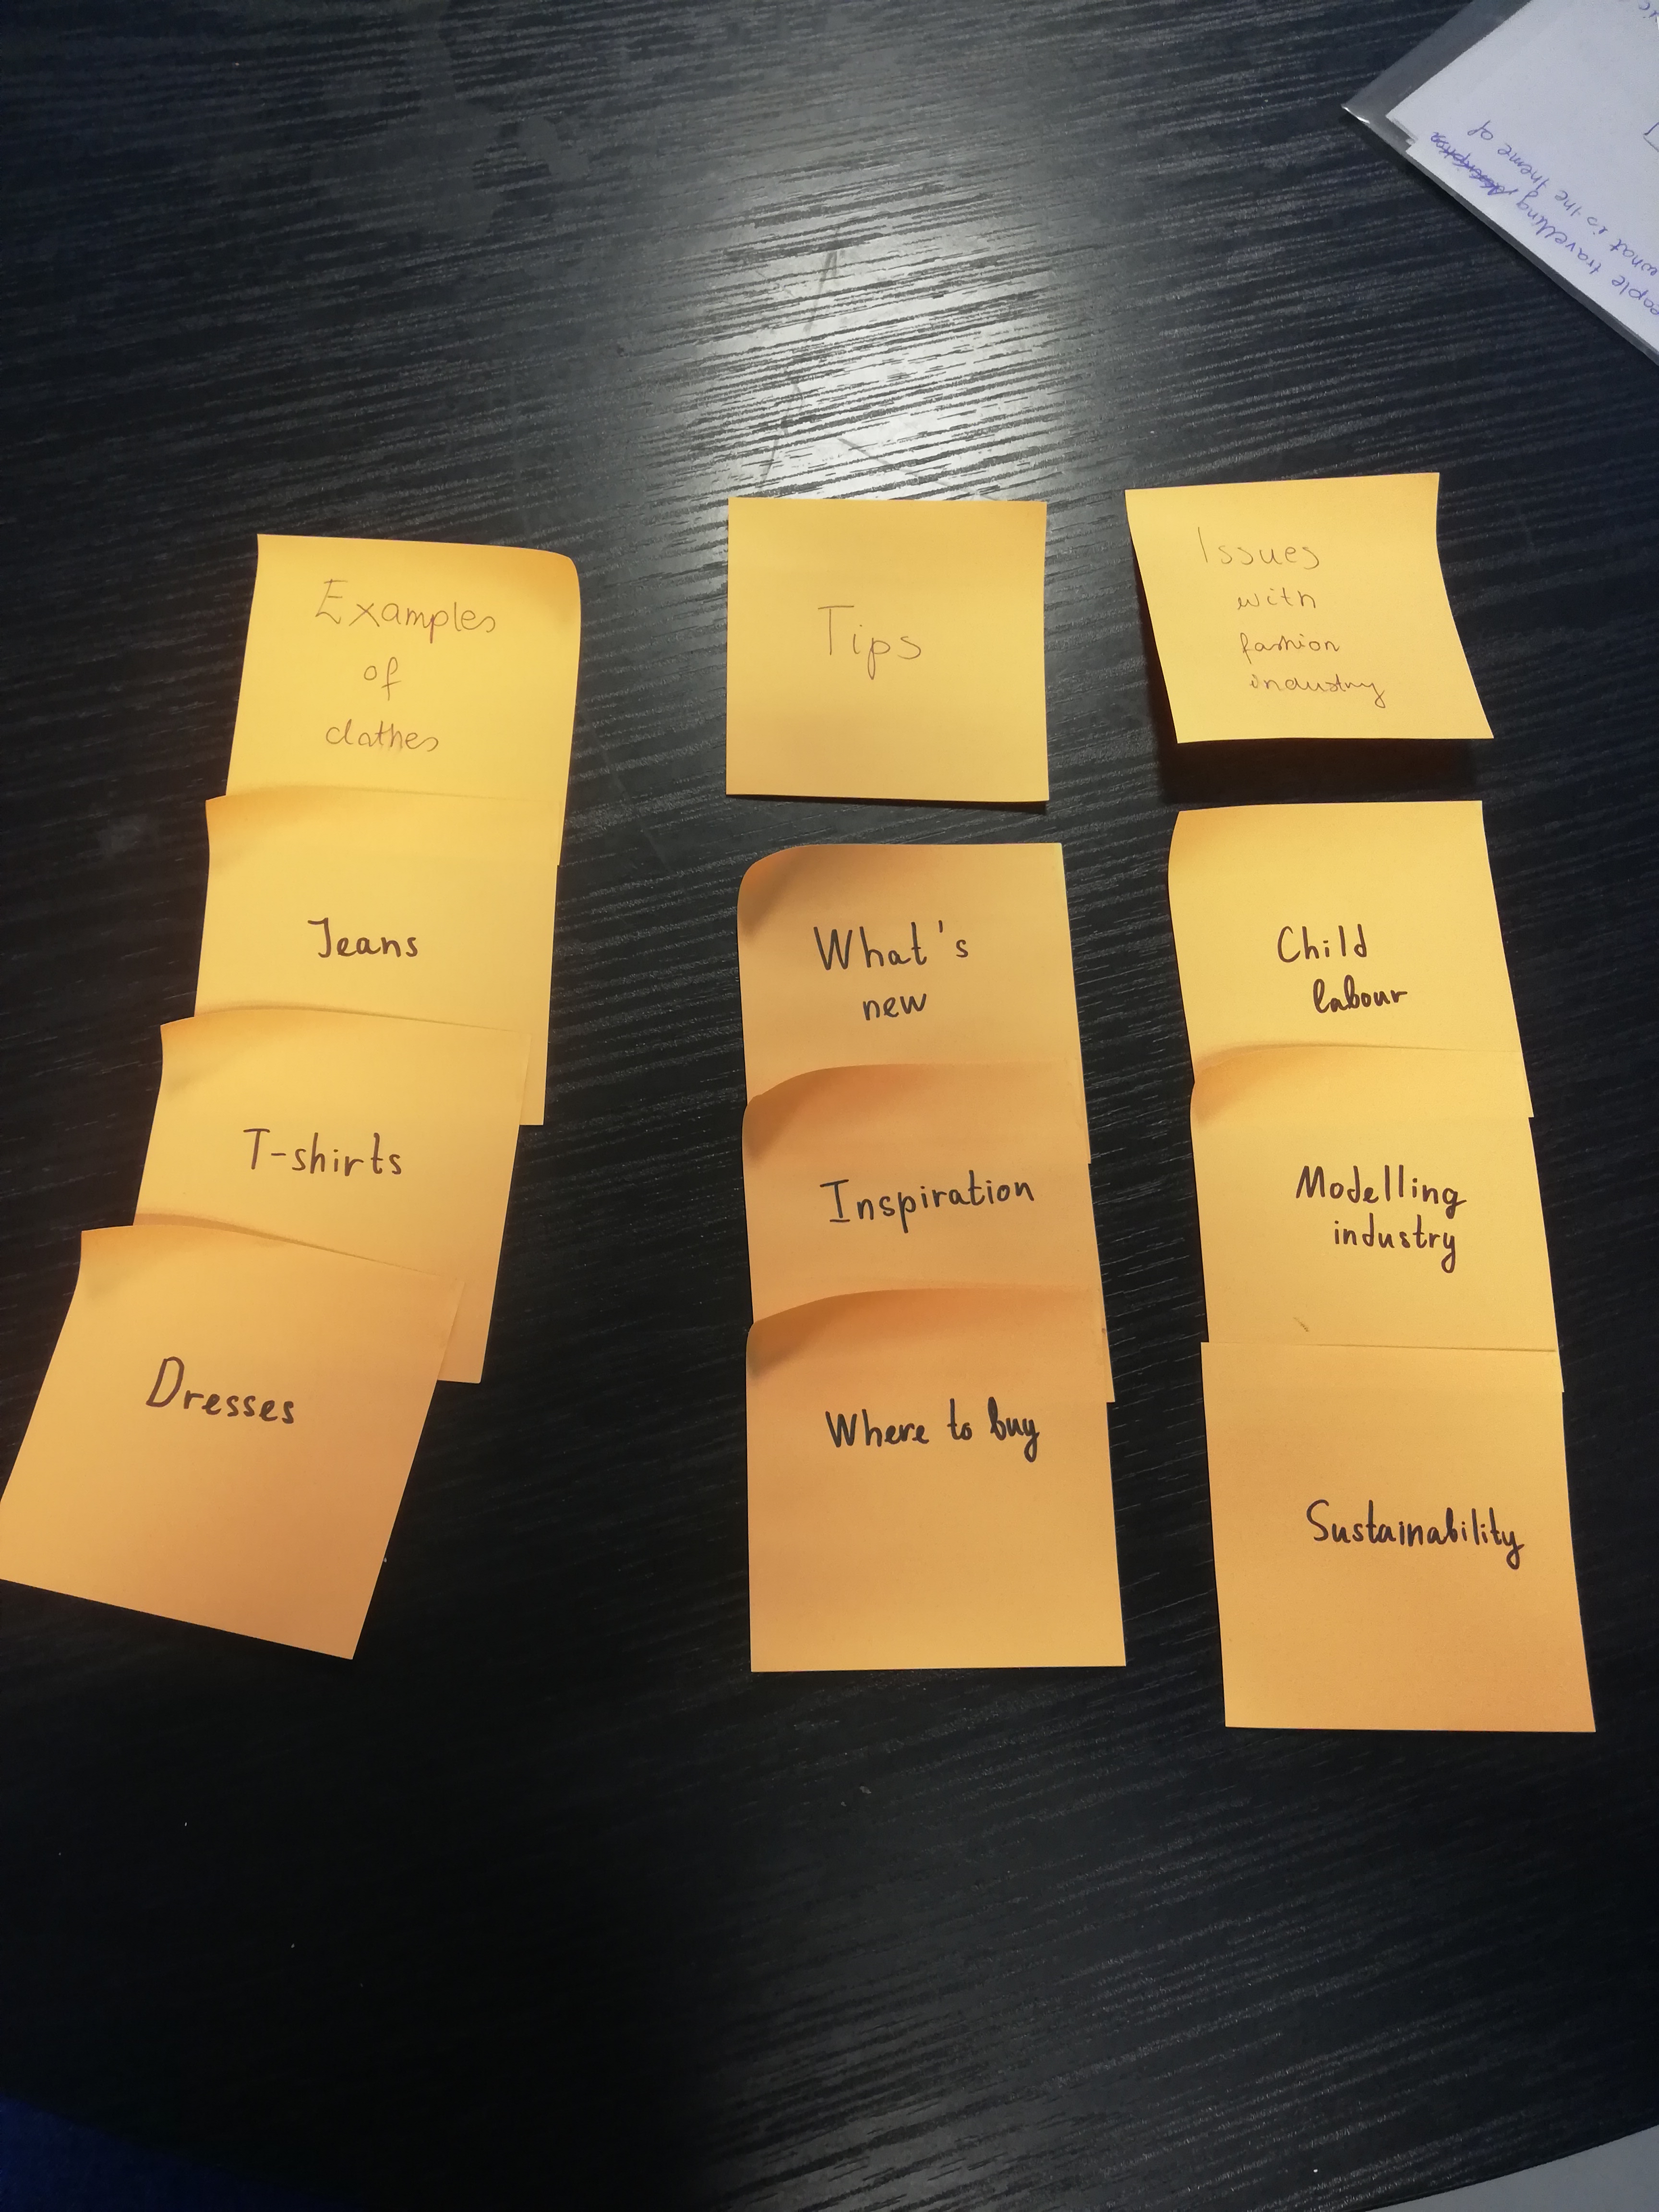 Examples
of
clothes
Jeans
T-shirts
Dresses
Tips
What's
new
Inspiration
Where to buy
Issues
with
fashion
industry
Child
labour
Modelling
industry
Sustainability
what is the theme of
travelling